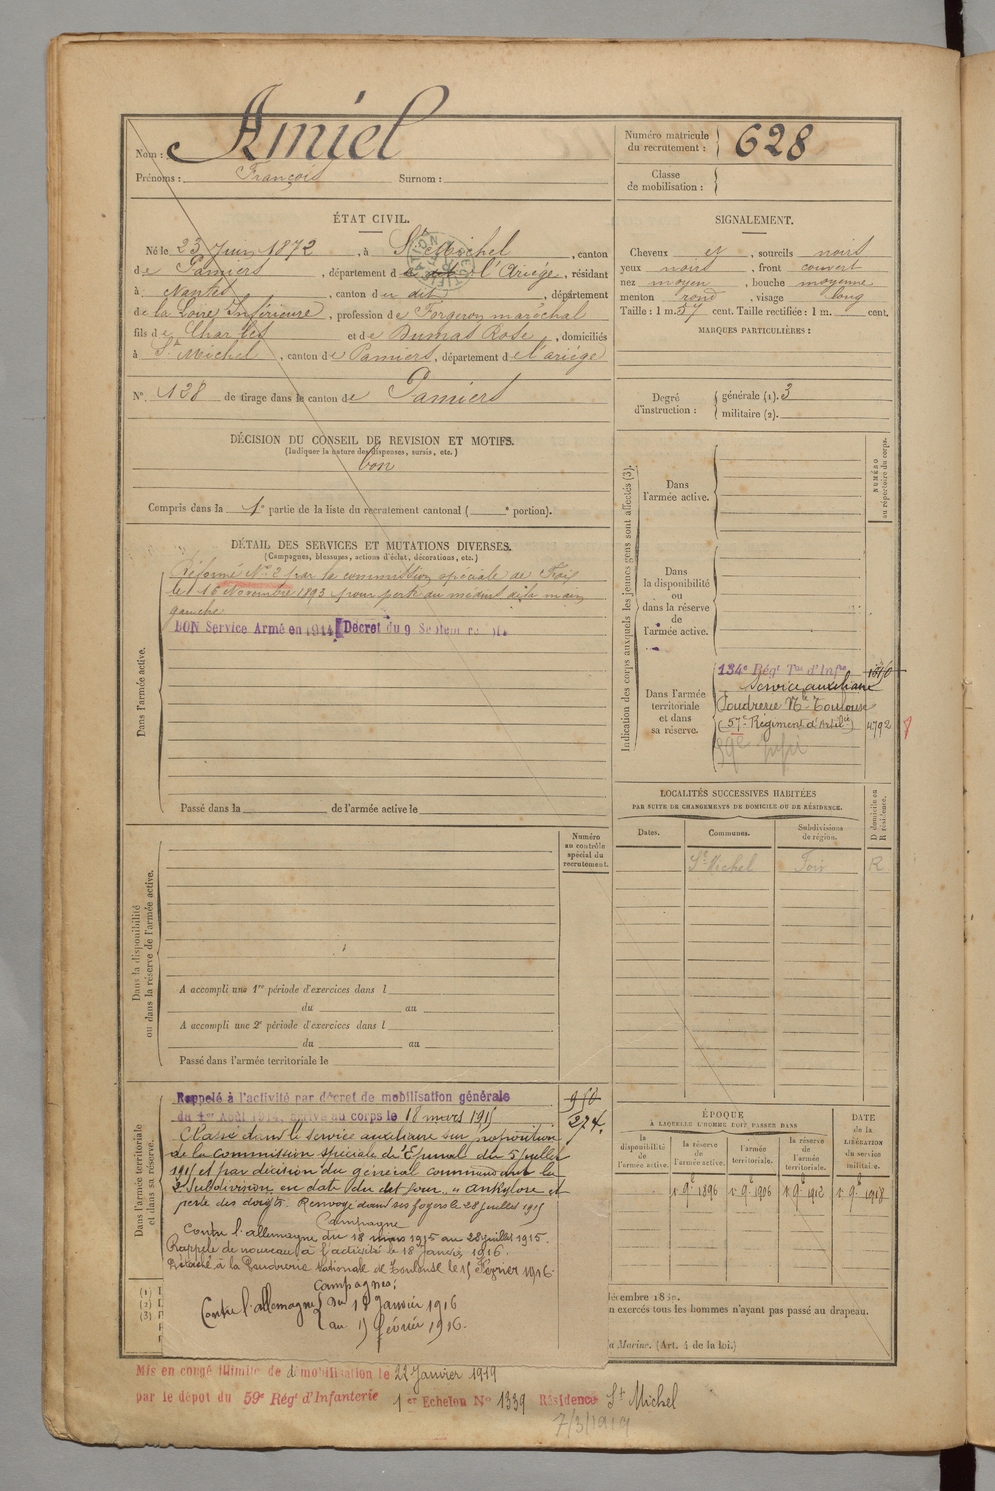 Nom : Amiel
Prénoms : François Surnom :
Numéro matricule du recrutement : 628
Classe de mobilisation :
ÉTAT CIVIL.
Né le 23 Juin 1872, à St Michel, canton
de Pamiers, département de l'Ariège, résidant
à Nantes, canton du dit, département
de la Loire Inférieure, profession de Forgeron maréchal
fils de Charles et de Dumas Rose, domiciliés
à St Michel, canton de Pamiers, département de l'ariège
N°. 128 de tirage dans le canton de Pamiers
SIGNALEMENT.
Cheveux et, sourcils noirs
yeux noirs, front couvert
nez moyen, bouche moyenne
menton rond, visage long
Taille : 1 m. 57 cent. Taille rectifiée : 1 m. cent.
MARQUES PARTICULIÈRES :
Degré d'instruction : générale (1). 3
militaire (2).
DÉCISION DU CONSEIL DE REVISION ET MOTIFS.
(Indiquer la nature des dispenses, sursis, etc.)
bon
Compris dans la 1e partie de la liste du recrutement cantonal ( e portion).
DÉTAIL DES SERVICES ET MUTATIONS DIVERSES.
(Campagnes, blessures, actions d'éclat, décorations, etc.)
Dans l'armée active.
Réformé N° 2 par la commission spéciale de Foix
le 16 Novembre 1893 pour perte du médius de la main
gauche
BON Service Armé en 1914 Décret du 9 Septembre
Passé dans la de l'armée active le
Indication des corps auxquels les jeunes gens sont affectés (3).
NUMÉRO au répertoire du corps.
Dans l'armée active.
Dans la disponibilité ou dans la réserve de l'armée active.
Dans l'armée territoriale et dans sa réserve.
134e Régt Tal d'Infie
Service auxiliaire
Poudrerie Nle Toulouse
(57e Régiment d'Artilie) 4792
59e infie
LOCALITÉS SUCCESSIVES HABITÉES
PAR SUITE DE CHANGEMENTS DE DOMICILE OU DE RÉSIDENCE.
Dates. Communes. Subdivisions de région. D domicile ou R résidence.
St Michel Foix R
Numéro au contrôle spécial du recrutement.
Dans la disponibilité ou dans la réserve de l'armée active.
A accompli une 1re période d'exercices dans l
du au
A accompli une 2e période d'exercices dans l
du au
Passé dans l'armée territoriale le
Dans l'armée territoriale et dans sa réserve.
Rappelé à l'activité par décret de mobilisation générale
du 1er Août 1914, arrivé au corps le 18 mars 1915
Classé dans le service auxiliaire sur proposition
de la Commission spéciale d'Epinal du 5 juillet
1915 et par décision du général commandant la
2e Subdivision en date du dit jour " ankylose et
perte des doigts. Renvoyé dans ses foyers le 28 juillet 1915
Campagne
Contre l'allemagne du 18 mars 1915 au 28 juillet 1915.
Rappelé de nouveau à l'activité le 18 Janvier 1916.
Détaché à la Poudrerie Nationale de Toulouse le 15 Février 1916.
Campagnes :
Contre l'allemagne du 18 Janvier 1916
au 15 février 1916.
ÉPOQUE
À LAQUELLE L'HOMME DOIT PASSER DANS
la disponibilité de l'armée active. la réserve de l'armée active. l'armée territoriale. la réserve de l'armée territoriale.
DATE de la LIBÉRATION du service militaire.
1er 9e 1896 1er 9e 1906 1er 9e 1912 1er 9e 1918
(1)
(2)
(3)
n exercés tous les hommes n'ayant pas passé au drapeau.
a Marine. (Art. 4 de la loi.)
Mis en congé illimité de démobilisation le 22 Janvier 1919
par le dépôt du 59e Régt d'Infanterie 1er Echelon N° 1339 Résidence St Michel
7/3/1919